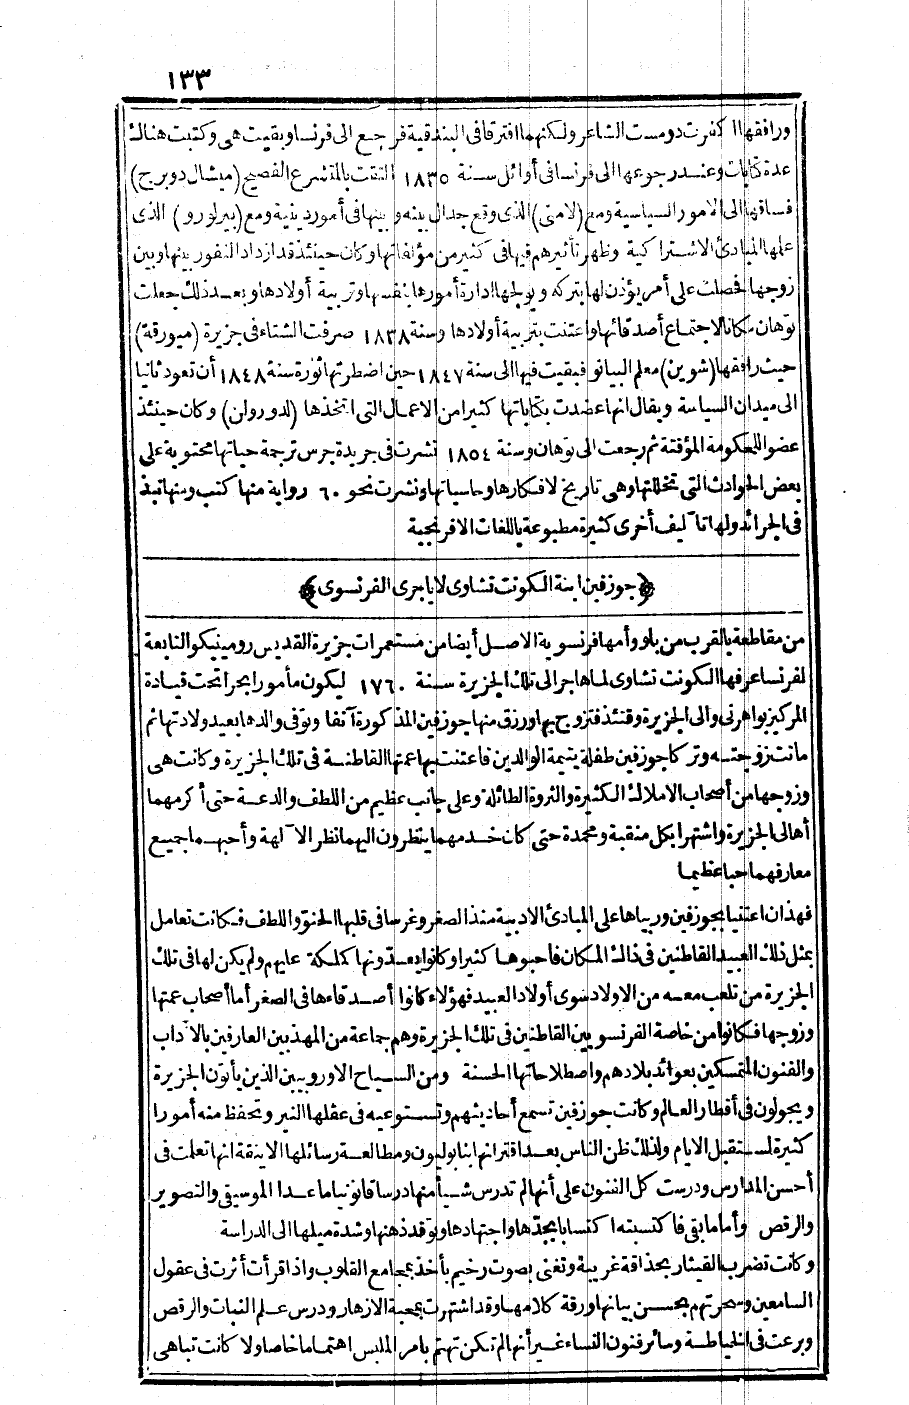 ١٣٣
ورافقها الكفرت دومست الشاعر ولكنهما افترقا فى البندقية فرجع الى فرنسا وبقيت هى وكتبت هناك
عدة كتابات وعند رجوعها الى فرنسا فى أوائل سنة ١٨٣٥ التقت بالمتشرع الفصيح (ميشال دو برج)
فساقها الى الامور السياسية ومع (لامنى) الذى وقع جدال بينه وبينها فى أمور دينية ومع (بيرلورو) الذى
علمها المبادئ الاشتراكية وظهر تأثيرهم فيها فى كثير من مؤلفاتها وكان حينئذ قد ازداد النفور بينها وبين
زوجها فحصلت على أمر يؤذن لها بتركه ويولجها ادارة أمورها بنفسها وتربية أولادها وبعد ذلك جعلت
نوهان مكانا لاجتماع أصدقائها واعتنت بتربية أولادها وسنة ١٨٣٨ صرفت الشتاء فى جزيرة (ميورقة)
حيث رافقها (شوبن) معلم البيانو فبقيت فيها الى سنة ١٨٤٧ حين اضطرتها ثورة سنة ١٨٤٨ أن تعود ثانيا
الى ميدان السياسة ويقال انها عضدت بكتاباتها كثيرا من الاعمال التى اتخذها (لدوروان) وكان حينئذ
عضوا للحكومة المؤقتة ثم رجعت الى نوهان وسنة ١٨٥٤ نشرت فى جريدة جرس ترجمة حياتها محتوية على
بعض الحوادث التى تخللتها وهى تاريخ لافكارها وحاسياتها ونشرت نحو ٦٠ رواية منها كتب ومنها نبذ
فى الجرائد ولها تآليف أخرى كثيرة مطبوعة باللغات الافرنجية
﴿جوزفين ابنة الكونت تشاوى لاباجرى الفرنسوى﴾
من مقاطعة بالقرب من باو وأمها فرنسوية الاصل أيضا من مستعمرات جزيرة القديس رومينيكو التابعة
لفرنسا عرفها الكونت تشاوى لما هاجر الى تلك الجزيرة سنة ١٧٦٠ ليكون مأمورا بحرا تحت قيادة
المركيز بواهرنى والى الجزيرة وقتئذ فتزوج بها ورزق منها جوزفين المذكورة آنفا وتوفى والدها بعيد ولادتها ثم
ماتت زوجته وتركا جوزفين طفلة يتيمة الوالدين فاعتنت بها عمتها القاطنة فى تلك الجزيرة وكانت هى
وزوجها من أصحاب الاملاك الكثيرة والثروة الطائلة وعلى جانب عظيم من اللطف والدعة حتى أكرمهما
أهالى الجزيرة واشتهرا بكل منقبة ومحمدة حتى كان خدمهما ينظرون اليهما نظر الآلهة وأحبهما جميع
معارفهما حبا عظيما
فهذان اعتنيا بجوزفين وربياها على المبادئ الادبية منذ الصغر وغرسا فى قلبها الحنو واللطف فكانت تعامل
بمثل ذلك العبيد القاطنين فى ذاك المكان فأحبوها كثيرا وكانوا يعدونها كملكة عليهم ولم يكن لها فى تلك
الجزيرة من تلعب معه من الاولاد سوى أولاد العبيد فهؤلاء كانوا أصدقاءها فى الصغر أما أصحاب عمتها
وزوجها فكانوا من خاصة الفرنسويين القاطنين فى تلك الجزيرة وهم جماعة من المهذبين العارفين بالآداب
والفنون المتمسكين بعوائد بلادهم واصطلاحاتها الحسنة ومن السياح الاوروبيين الذين يأتون الجزيرة
ويجولون فى أقطار العالم وكانت جوزفين تسمع أحاديثهم وتستوعيه فى عقلها النير وتحفظ منه أمورا
كثيرة لمستقبل الايام ولذلك ظن الناس بعد اقترانها بنابوليون ومطالعة رسائلها الانيقة انها تعلمت فى
أحسن المدارس ودرست كل الفنون على أنها لم تدرس شيأ منها درسا قانونيا ما عدا الموسيقى والتصوير
والرقص وأما ما بقى فاكتسبته اكتسابا بجدها واجتهادها وتوقد ذهنها وشدة ميلها الى الدراسة
وكانت تضرب القيثار بحذاقة غريبة وتغنى بصوت رخيم يأخذ بمجامع القلوب واذا قرأت أثرت فى عقول
السامعين وسحرتهم بحسن بيانها ورقة كلامها وقد اشتهرت بمحبة الازهار ودرس علم النبات والرقص
وبرعت فى الخياطة وسائر فنون النساء غير أنها لم تكن تهتم بامر الملبس اهتماما خاصا ولا كانت تباهى